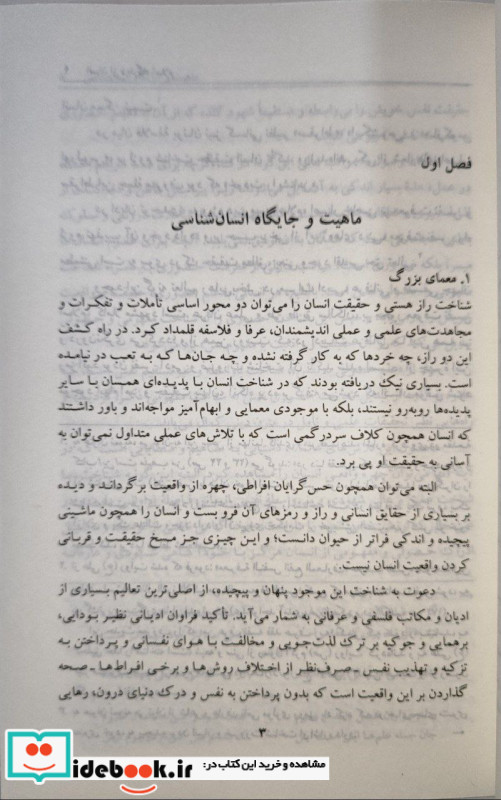 فصل اول
ماهیت و جایگاه انسان‌شناسی
۱. معمای بزرگ
شناخت راز هستی و حقیقت انسان را می‌توان دو محور اساسی تأملات و تفکرات و
مجاهدت‌های علمی و عملی اندیشمندان، عرفا و فلاسفه قلمداد کرد. در راه کشف
این دو راز، چه خردها که به کار گرفته نشده و چه جان‌ها که به تعب در نیامده
است. بسیاری نیک دریافته بودند که در شناخت انسان با پدیده‌ای همسان با سایر
پدیده‌ها روبه‌رو نیستند، بلکه با موجودی معمایی و ابهام‌آمیز مواجه‌اند و باور داشتند
که انسان همچون کلاف سردرگمی است که با تلاش‌های عملی متداول نمی‌توان به
آسانی به حقیقت او پی برد.
البته می‌توان همچون حس‌گرایان افراطی، چهره از واقعیت برگرداند و دیده
بر بسیاری از حقایق انسانی و راز و رمزهای آن فرو بست و انسان را همچون ماشینی
پیچیده و اندکی فراتر از حیوان دانست؛ و این چیزی جز مسخ حقیقت و قربانی
کردن واقعیت انسان نیست.
دعوت به شناخت این موجود پنهان و پیچیده، از اصلی‌ترین تعالیم بسیاری از
ادیان و مکاتب فلسفی و عرفانی به شمار می‌آید. تأکید فراوان ادیانی نظیر بودایی،
برهمایی و جوکیه بر ترک لذت‌جویی و مخالفت با هوای نفسانی و پرداختن به
تزکیه و تهذیب نفس ـ صرف‌نظر از اختلاف روش‌ها و برخی افراط‌ها ـ صحه
گذاردن بر این واقعیت است که بدون پرداختن به نفس و درک دنیای درون، رهایی
۳
مشاهده و خرید این کتاب در:
idebook.ir